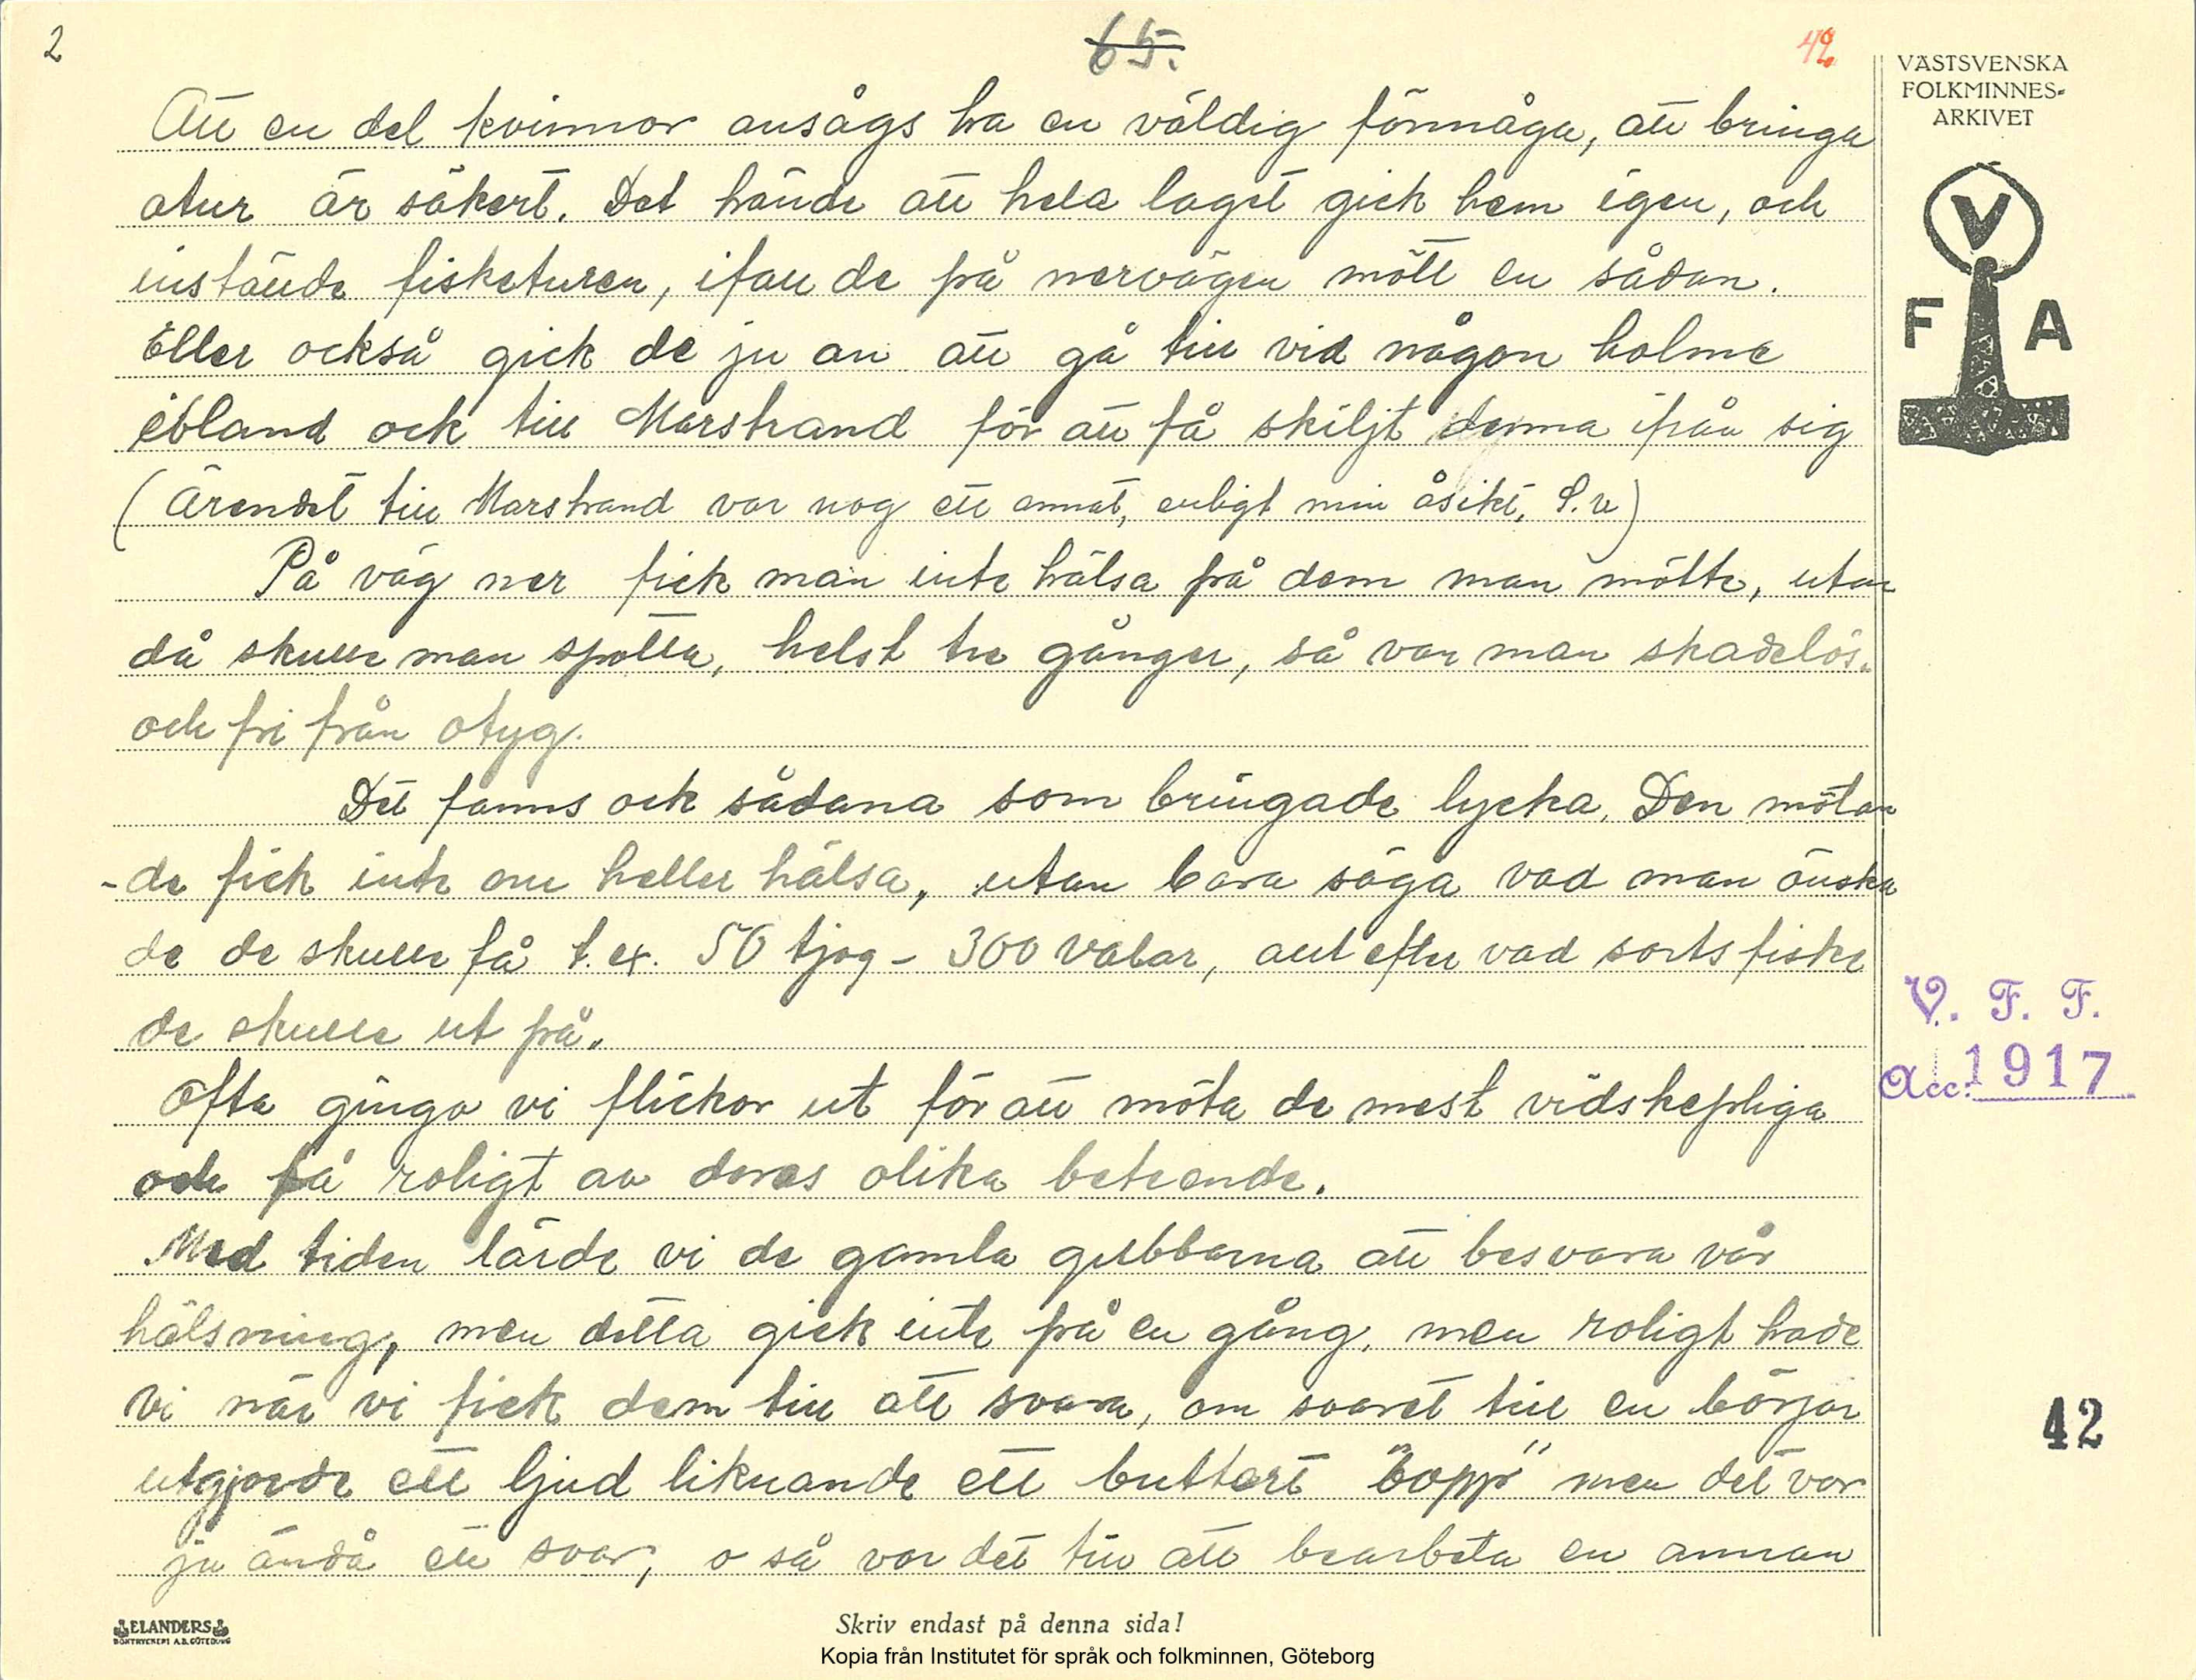 2
65.
42
VÄSTSVENSKA
FOLKMINNES-
ARKIVET
V
F A
Att en del kvinnor ansågs ha en väldig förmåga, att bringa
otur är säkert. Det hände att hela laget gick hem igen, och
instände fisketuren, ifall de på nervägen mött en sådan.
Eller också gick de ju an att gå till vid någon holme
ibland ock till Marstrand för att få skiljt denna ifrån sig
(Ärendet till Marstrand var nog ett annat, enligt min åsikt, S.u)
På väg ner fick man inte hälsa på dem man mötte, utan
då skulle man spotta, helst tre gånger, så var man skadelös.
och fri från otyg.
Det fanns ock sådana som bringade lycka. Den mötan
-de fick inte om heller hälsa, utan bara säga vad man önska
de de skulle få t.ex. 50 tjog - 300 valar, allt efter vad sorts fiske
de skulle ut på.
Ofta gingo vi flickor ut för att möta de mest vidskepliga
och få roligt av deras olika beteende.
Med tiden lärde vi de gamla gubbarna att besvara vår
hälsning, men detta gick inte på en gång, men roligt hade
vi när vi fick dem till att svara, om svaret till en början
utgjorde ett ljud liknande ett buttert "bopp" men det var
ju ändå ett svar, o så var det till att bearbeta en annan
V. F. F.
Acc: 1917
42
ELANDERS
BOKTRYCKERI A.B. GÖTEBORG
Skriv endast på denna sida!
Kopia från Institutet för språk och folkminnen, Göteborg